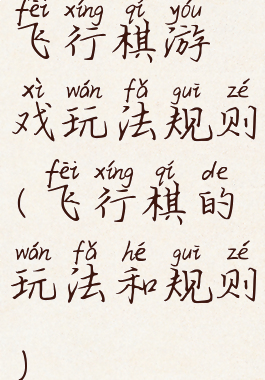 fēi xíng qí yóu
飞行棋游
xì wán fǎ guī zé
戏玩法规则
fēi xíng qí de
(飞行棋的
wán fǎ hé guī zé
玩法和规则
)